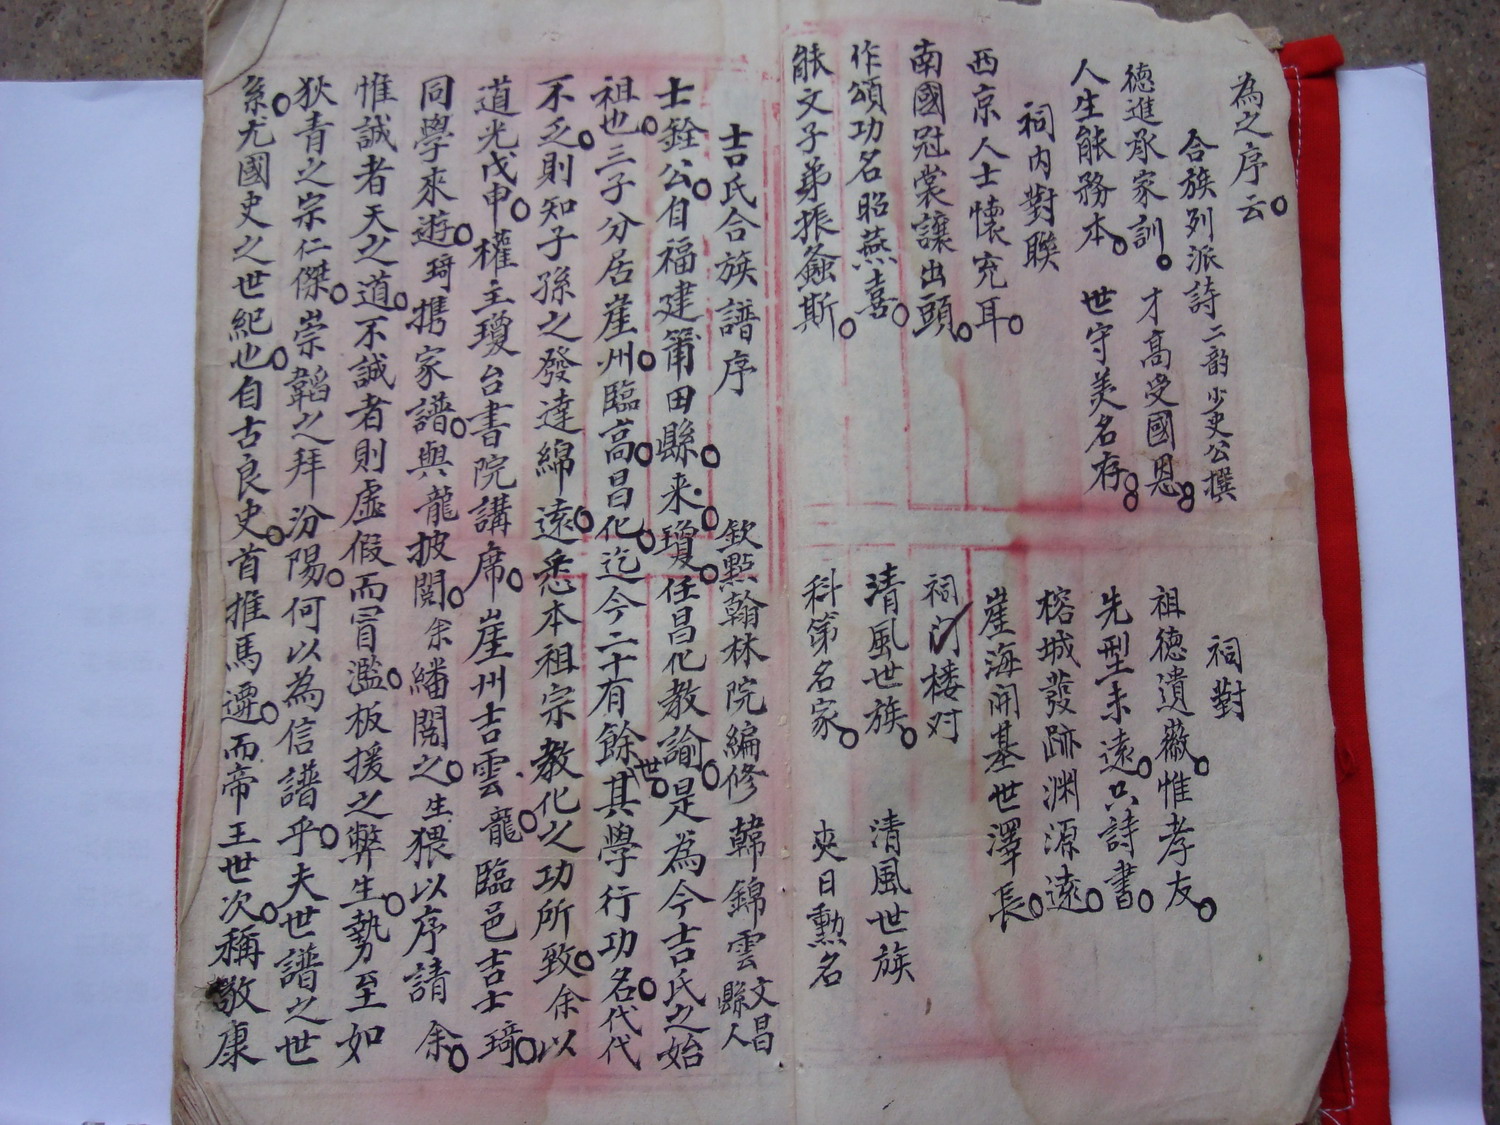 為之序云
合族列派詩 二韵少史公撰
德進承家訓 才高受國恩
人生能務本 世守美名存
祠內對聯
西京人士懷充耳
南國冠裳讓出頭
作頌功名昭燕喜
能文子弟振螽斯
祠對
祖德遺徽惟孝友
先型未遠只詩書
榕城發跡渊源遠
崖海開基世澤長
祠门楼对
清風世族 清風世族
科第名家 奕日勲名
吉氏合族譜序 欽點翰林院編修 韓錦雲 文昌縣人
士銓公自福建莆田縣来瓊任昌化教諭是為今吉氏之始
祖也三子分居崖州臨高昌化迄今二十有餘世其學行功名代代
不乏則知子孫之發達綿遠悉本祖宗教化之功所致余以
道光戊申權主瓊台書院講席崖州吉雲龍臨邑吉士琦
同學來遊琦携家譜與龍披閲余繙閲之生猥以序請余
惟誠者天之道不誠者則虛假而冒濫板援之弊生勢至如
狄青之宗仁傑崇韜之拜汾陽何以為信譜乎夫世譜之世
系尤國史之世紀也自古良史首推馬遷而帝王世次稱敬康